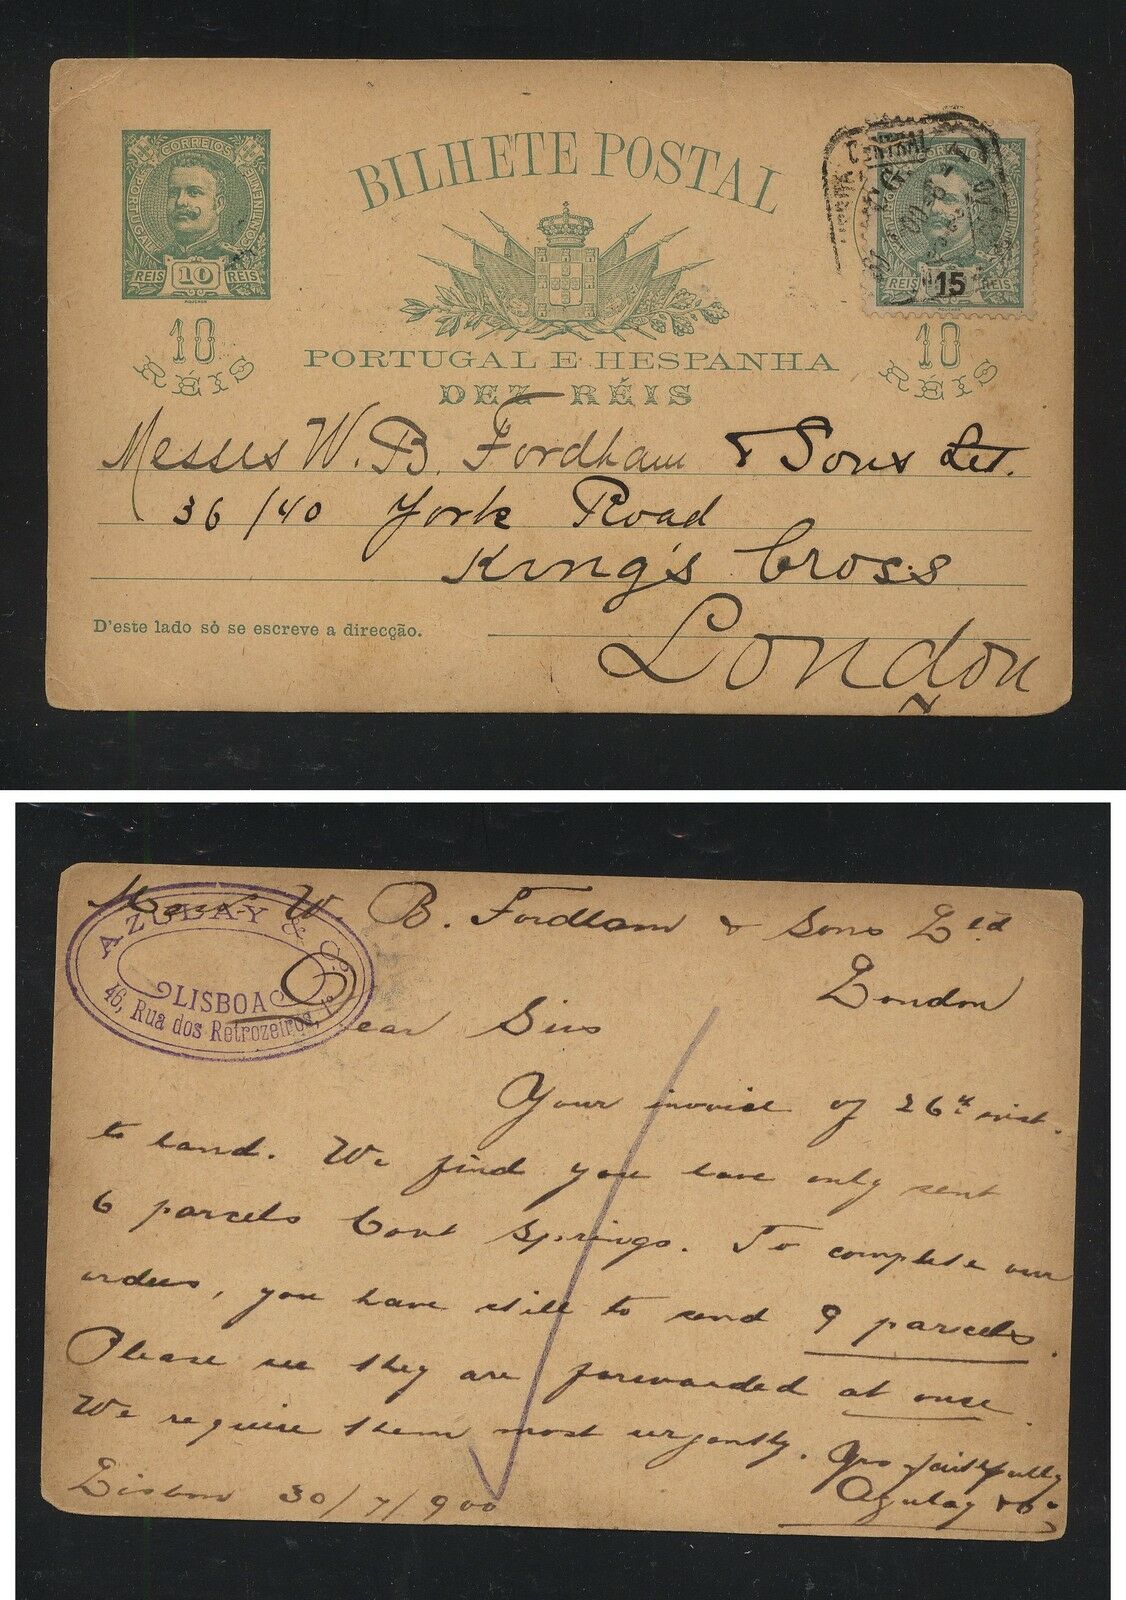 BILHETE POSTAL
CORREIOS
PORTUGAL
CONTINENTE
REIS 10 REIS
CENTRAL
REIS 15 REIS
10 RÉIS
10 RÉIS
PORTUGAL E HESPANHA
DEZ RÉIS
Messrs W. B. Fordham & Sons Ld.
36/40 York Road
King's Cross
D'este lado só se escreve a direcção.
London
Messrs W. B. Fordham & Sons Ltd
AZULAY & Co.
LISBOA
46, Rua dos Retrozeiros, 1º
London
Dear Sirs
Your invoice of 26th inst.
to hand. We find you have only sent
6 parcels Cont Springs. To complete our
orders, you have still to send 9 parcels.
Please see they are forwarded at once.
We require them most urgently. Yrs faithfully
Azulay & Co
Lisbon 30/7/900